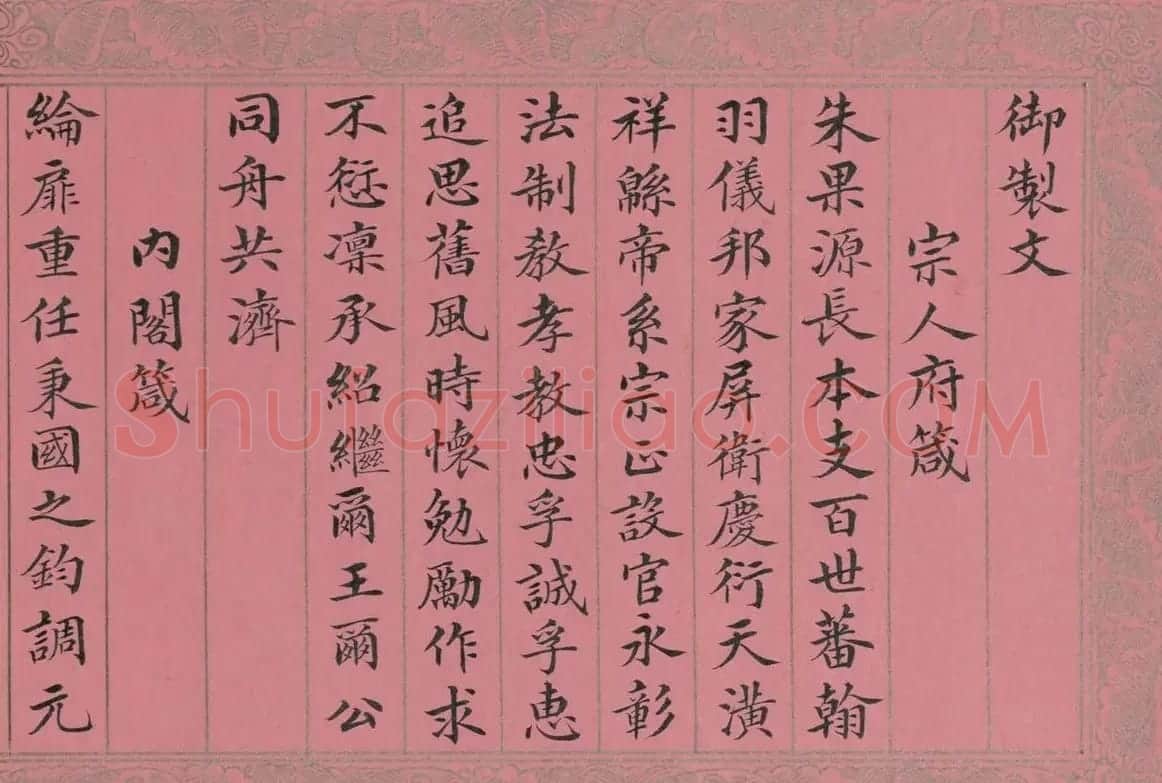 御製文
宗人府箴
朱果源長本支百世蕃翰
羽儀邦家屏衛慶衍天潢
祥緜帝系宗正設官永彰
法制敎孝教忠孚誠孚惠
追思舊風時懷勉勵作求
不愆凜承紹繼爾王爾公
同舟共濟
内閣箴
綸扉重任秉國之鈞調元
Shufaziliao.COM